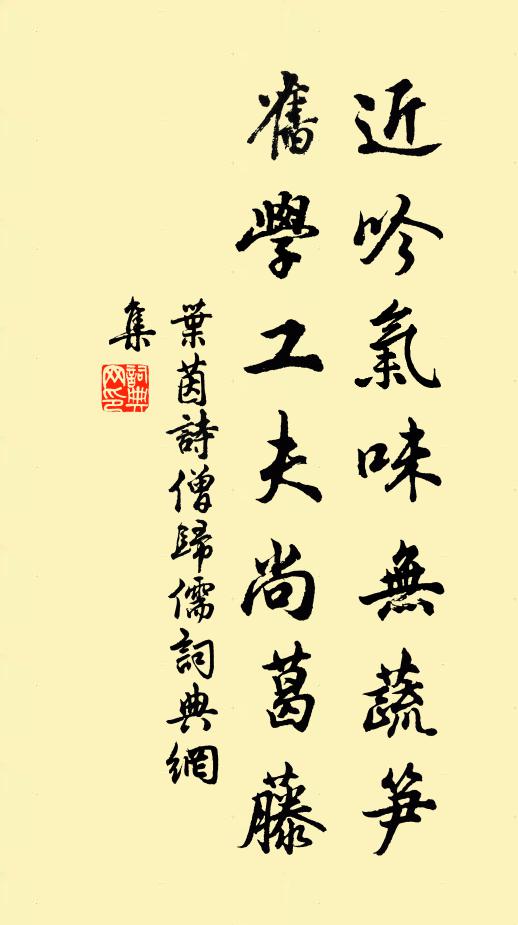 近吟氣味無蔬笋
舊學工夫尚葛藤
葉茵詩僧歸儒詞典網
集
詞典網印